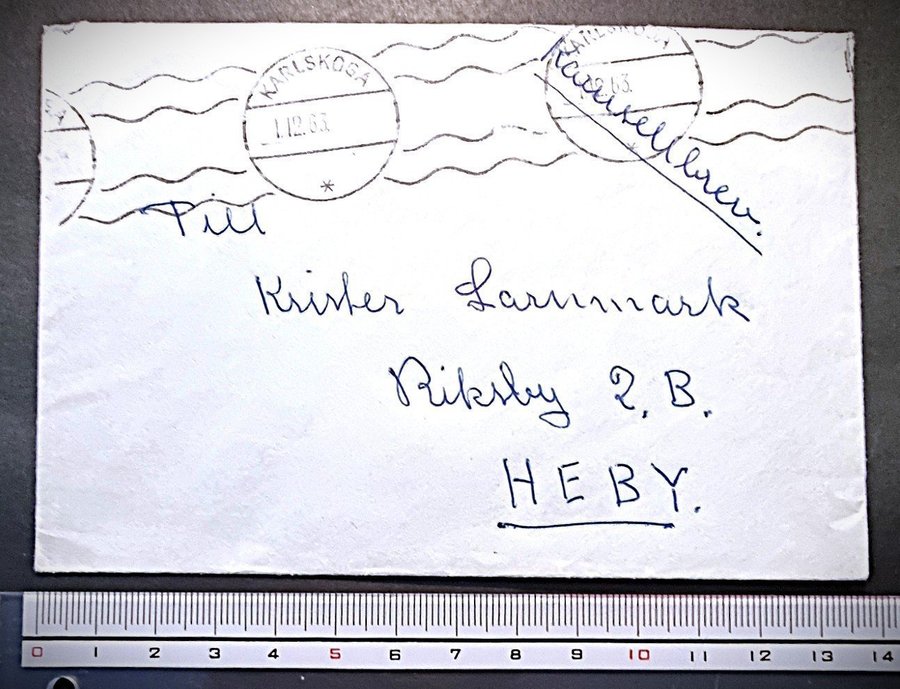 KARLSKOGA
1.12.63.
KARLSKOGA
.12.63.
Karusellbrev.
SA
Till
Krister Larnmark
Riksby 2. B.
HEBY.
0 1 2 3 4 5 6 7 8 9 10 11 12 13 14